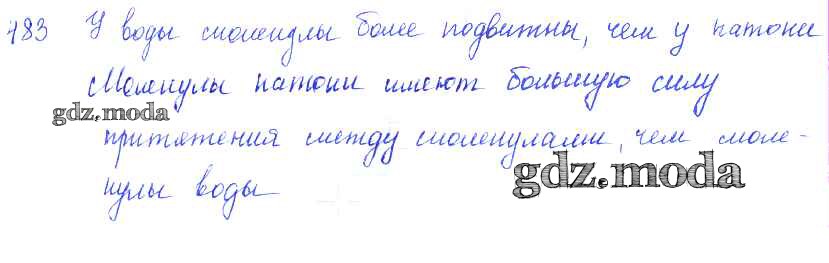 483 У воды молекулы более подвижны, чем у патоки
Молекулы патоки имеют большую силу
gdz.moda
притяжения между молекулами, чем моле-
кулы воды
gdz.moda